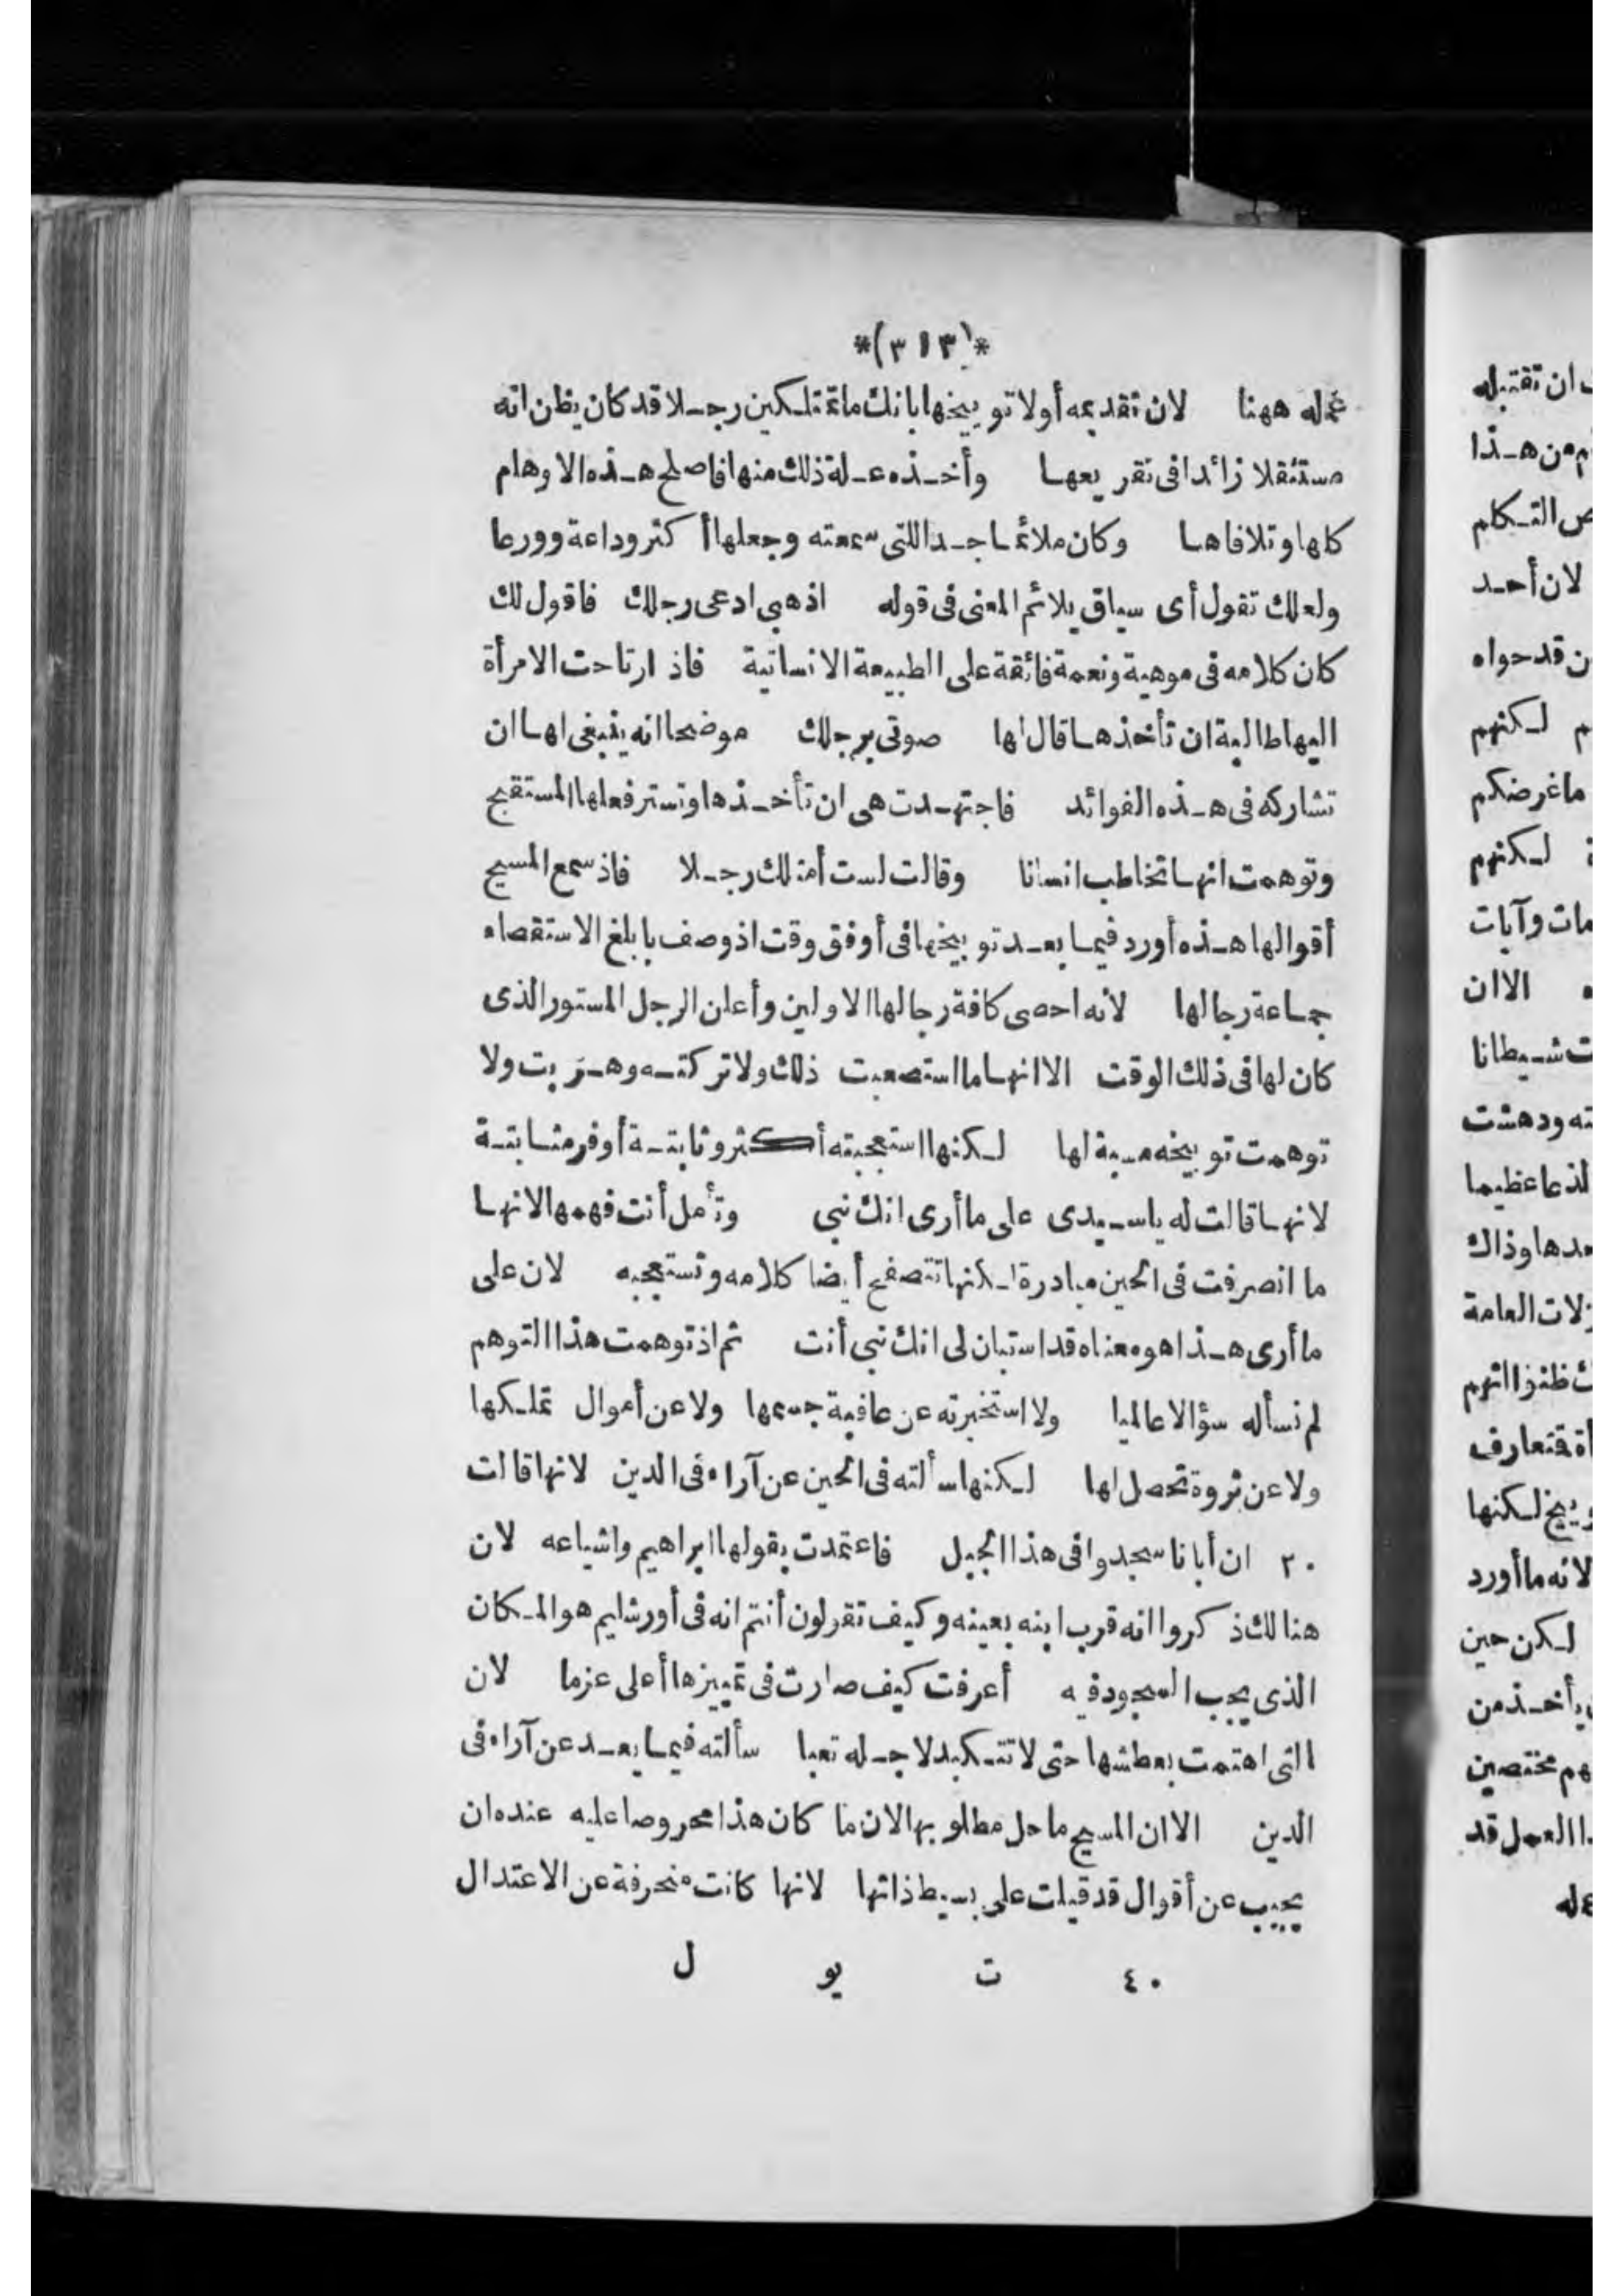 *(٣١٣)*
عمله ههنا لان تقديمه أولا توبيخها بانك ما تمتلكين رجلا قد كان يظن انه
مستثقلا زائدا في تقريعها وأخذه علة ذلك منها فاصلح هذه الاوهام
كلها وتلافاها وكان ملائما جدا للتي سمعته وجعلها أكثر وداعة وورعا
ولعلك تقول أى سياق يلائم المعنى في قوله اذهبي ادعى رجلك فاقول لك
كان كلامه في موهبة ونعمة فائقة على الطبيعة الانسانية فاذ ارتاحت الامرأة
اليها طالبة ان تأخذها قال لها صوتي برجلك موضحا انه ينبغى لها ان
تشاركه في هذه الفوائد فاجتهدت هى ان تأخذها وتستر فعلها المستقبح
وتوهمت انها تخاطب انسانا وقالت لست أمتلك رجلا فاذ سمع المسيح
أقوالها هذه أورد فيما بعد توبيخها في أوفق وقت اذ وصف بابلغ الاستقصاء
جماعة رجالها لانه احصى كافة رجالها الاولين وأعلن الرجل المستور الذى
كان لها في ذلك الوقت الا انها ما استصعبت ذلك ولا تركته وهربت ولا
توهمت توبيخه مسبة لها لكنها استعجبته أكثر وثابتة أوفر مثابتة
لانها قالت له ياسيدى على ما أرى انك نبي وتأمل أنت فهمها لانها
ما انصرفت في الحين مبادرة لكنها تتصفح أيضا كلامه وتستعجبه لان على
ما أرى هذا هو معناه قد استبان لى انك نبي أنت ثم اذ توهمت هذا التوهم
لم تسأله سؤالا عالميا ولا استخبرته عن عافية جسمها ولا عن أموال تملكها
ولا عن ثروة تحصل لها لكنها سألته في الحين عن آراء في الدين لانها قالت
٢٠ ان أبانا سجدوا في هذا الجبل فاعتمدت بقولها ابراهيم واشياعه لان
هنالك ذكروا انه قرب ابنه بعينه وكيف تقولون أنتم انه في أورشليم هو المكان
الذى يجب السجود فيه أعرفت كيف صارت في تمييزها أعلى عزما لان
التى اهتمت بعطشها حتى لا تتكبد لاجله تعبا سألته فيما بعد عن آراء في
الدين الا ان المسيح ما حل مطلوبها لان ما كان هذا محروصا عليه عنده ان
يجيب عن أقوال قد قيلت على بسيط ذاتها لانها كانت منحرفة عن الاعتدال
٤٠ ت يو ل
ان تقتبله
من هذا
التكلم
لان أحد
قد حواه
لكنهم
ما غرضكم
لكنهم
وآيات
الا ان
شيطانا
ودهشت
لذعا عظيما
وذاك
العامة
ظنوا انهم
فتعارف
لكنها
لانه ما أورد
لكن حين
يأخذ من
مختصين
العمل قد